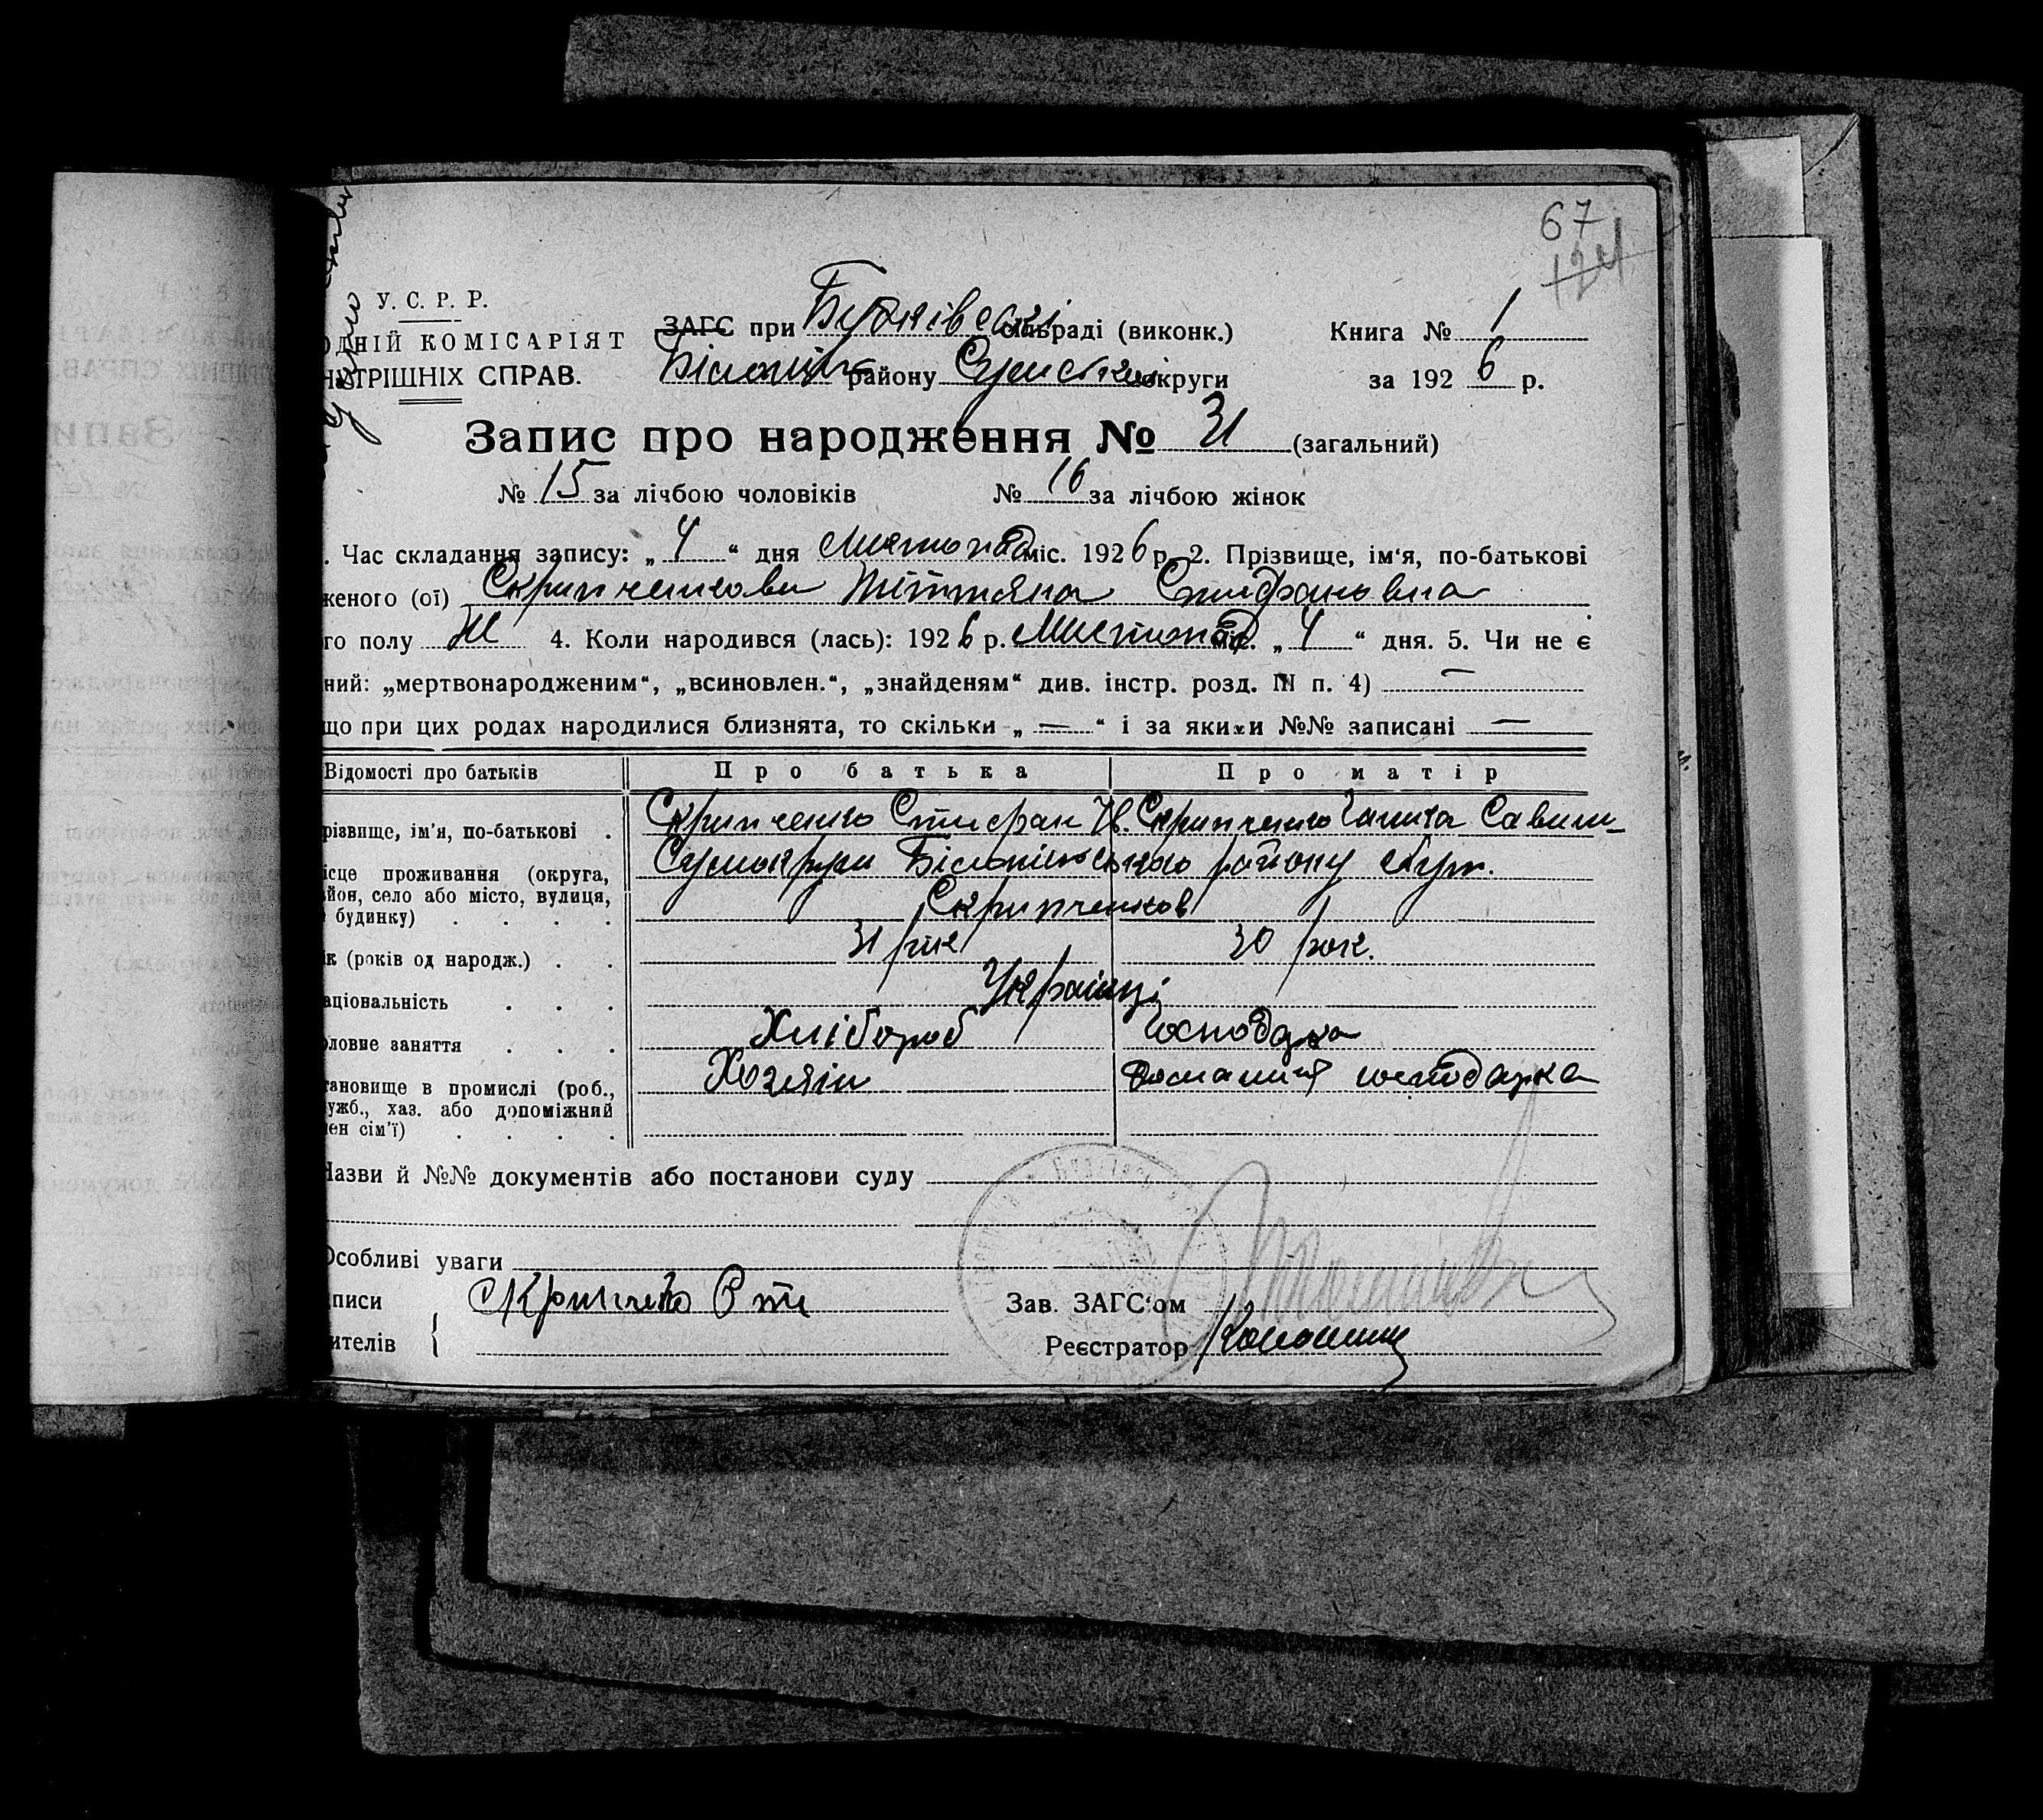 67
124
У. С. Р. Р.
ОДНІЙ КОМІСАРІЯТ
НУТРІШНІХ СПРАВ.
ЗАГС при сільраді (виконк.)
Книга № 1
району Сумської округи
за 1926 р.
Запис про народження № 31 (загальний)
№ 15 за лічбою чоловіків № 16 за лічбою жінок
. Час складання запису: „ 4 “ дня Листопад міс. 1926 р. 2. Прізвище, ім'я, по-батькові
женого (ої) Скрипченкова Тітяна Стифановна
го полу Ж 4. Коли народився (лась): 1926 р. Листопад міс. „ 4 “ дня. 5. Чи не є
ний: „мертвонародженим“, „всиновлен.“, „знайденям“ див. інстр. розд. III п. 4) —
що при цих родах народилися близнята, то скільки „ — “ і за якими №№ записані —
Відомості про батьків Про батька Про матір
різвище, ім'я, по-батькові . Скрипченко Стифан Ив. Скрипченко Ганна Савин–
ісце проживання (округа,
йон, село або місто, вулиця,
будинку) . . . .
Сумокруги Білопільського району хут.
Скрипченков
к (років од народж.) . . 31 рік 30 рок.
аціональність . . . Українці
оловне заняття . . . Хлібороб Господарка
тановище в промислі (роб., Хозяін Домашня господарка
ужб., хаз. або допоміжний
ен сім'ї) . . . .
Назви й №№ документів або постанови суду
Особливі уваги
писи Скрипченко Сти
ителів {
Зав. ЗАГС'ом
Реєстратор